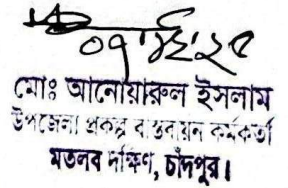 ০৭.১২.২৫
মোঃ আনোয়ারুল ইসলাম
উপজেলা প্রকল্প বাস্তবায়ন কর্মকর্তা
মতলব দক্ষিণ, চাঁদপুর।